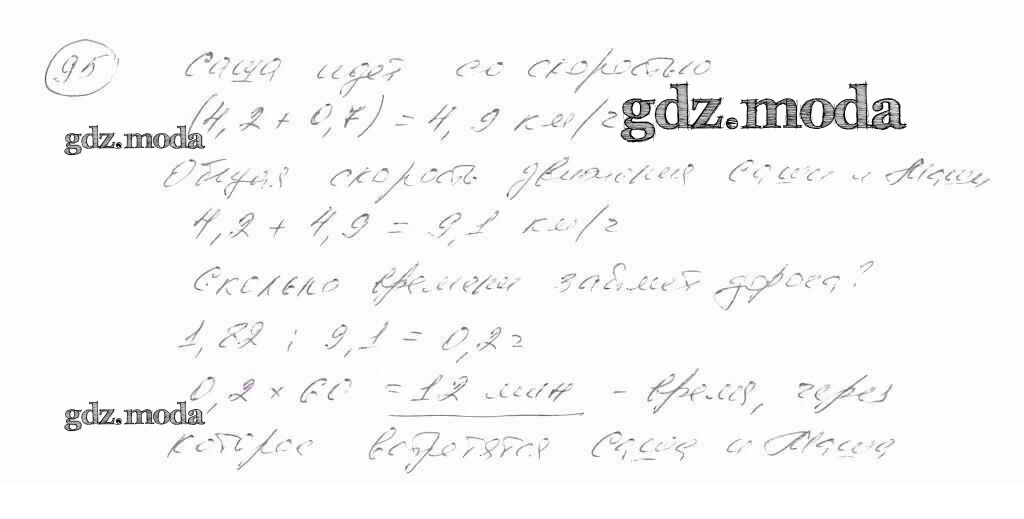 95
Саша идет со скоростью
(4,2 + 0,7) = 4,9 км/ч
gdz.moda
gdz.moda
Общая скорость движения Саши и Маши
4,2 + 4,9 = 9,1 км/ч
Сколько времени займет дорога?
1,82 : 9,1 = 0,2 ч
0,2 × 60 = 12 мин - время, через
gdz.moda
которое встретятся Саша и Маша